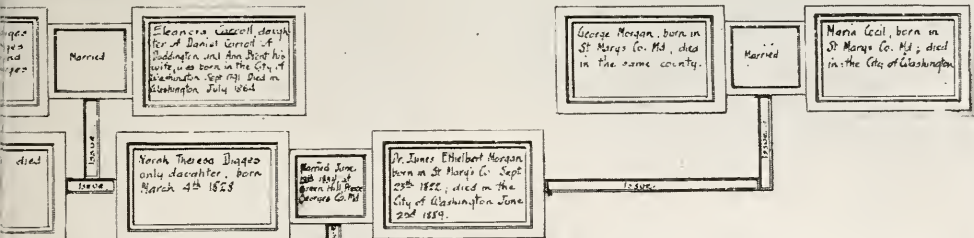 Married
Eleanora Carroll, daugh
ter of Daniel Carroll of
Duddington and Ann Brent his
wife, was born in the City of
Washington Sept 1791 Died in
Washington July 1864
George Morgan, born in
St Marys Co. Md, died
in the same county.
Married
Maria Cecil, born in
St Marys Co. Md; died
in the City of Washington
Issue
Issue
died
Issue
Norah Theresa Digges
only daughter, born
March 4th 1828
Married June
at
Green Hill, Prince
Georges Co. Md
Dr. James Ethelbert Morgan
born in St Mary's Co. Sept
25th 1822; died in the
City of Washington June
2nd 1889.
Issue